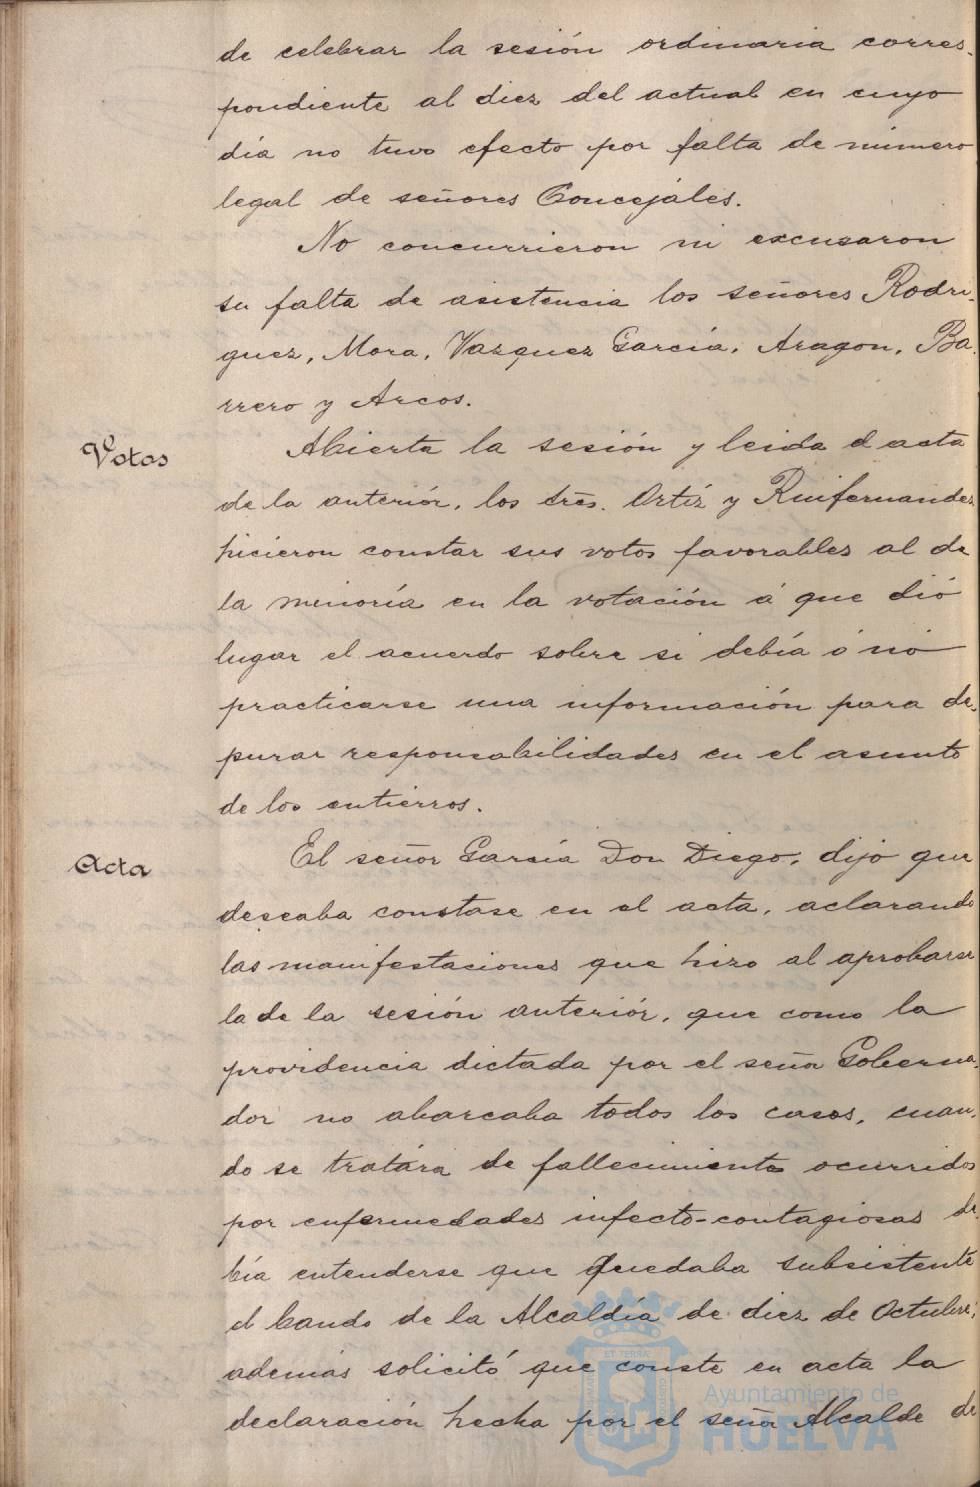 de celebrar la sesión ordinaria corres-
pondiente al diez del actual en cuyo
dia no tuvo efecto por falta de número
legal de señores Concejales.
No concurrieron ni excusaron
su falta de asistencia los señores Rodri-
guez, Mora, Vazquez García, Aragon, Ba-
rrero y Arcos.
Votos
Abierta la sesión y leida el acta
de la anteriór, los Srēs. Ortíz y Ruifernandez
hicieron constar sus votos favorables al de
la minoría en la votación á que dió
lugar el acuerdo sobre si debía ó nó
practicarse una información para de-
purar responsabilidades en el asunto
de los entierros.
Acta
El señor García Don Diego, dijo que
deseaba constase en el acta, aclarando
las manifestaciones que hizo al aprobarse
la de la sesión anteriór, que como la
providencia dictada por el señor Goberna-
dor no abarcaba todos los casos, cuan-
do se tratára de fallecimientos ocurridos
por enfermedades infecto-contagiosas de-
bía entenderse que quedaba subsistente
el bando de la Alcaldía de diez de Octubre;
además solicitó que conste en acta la
declaración hecha por el señor Alcalde de
Ayuntamiento de
HUELVA